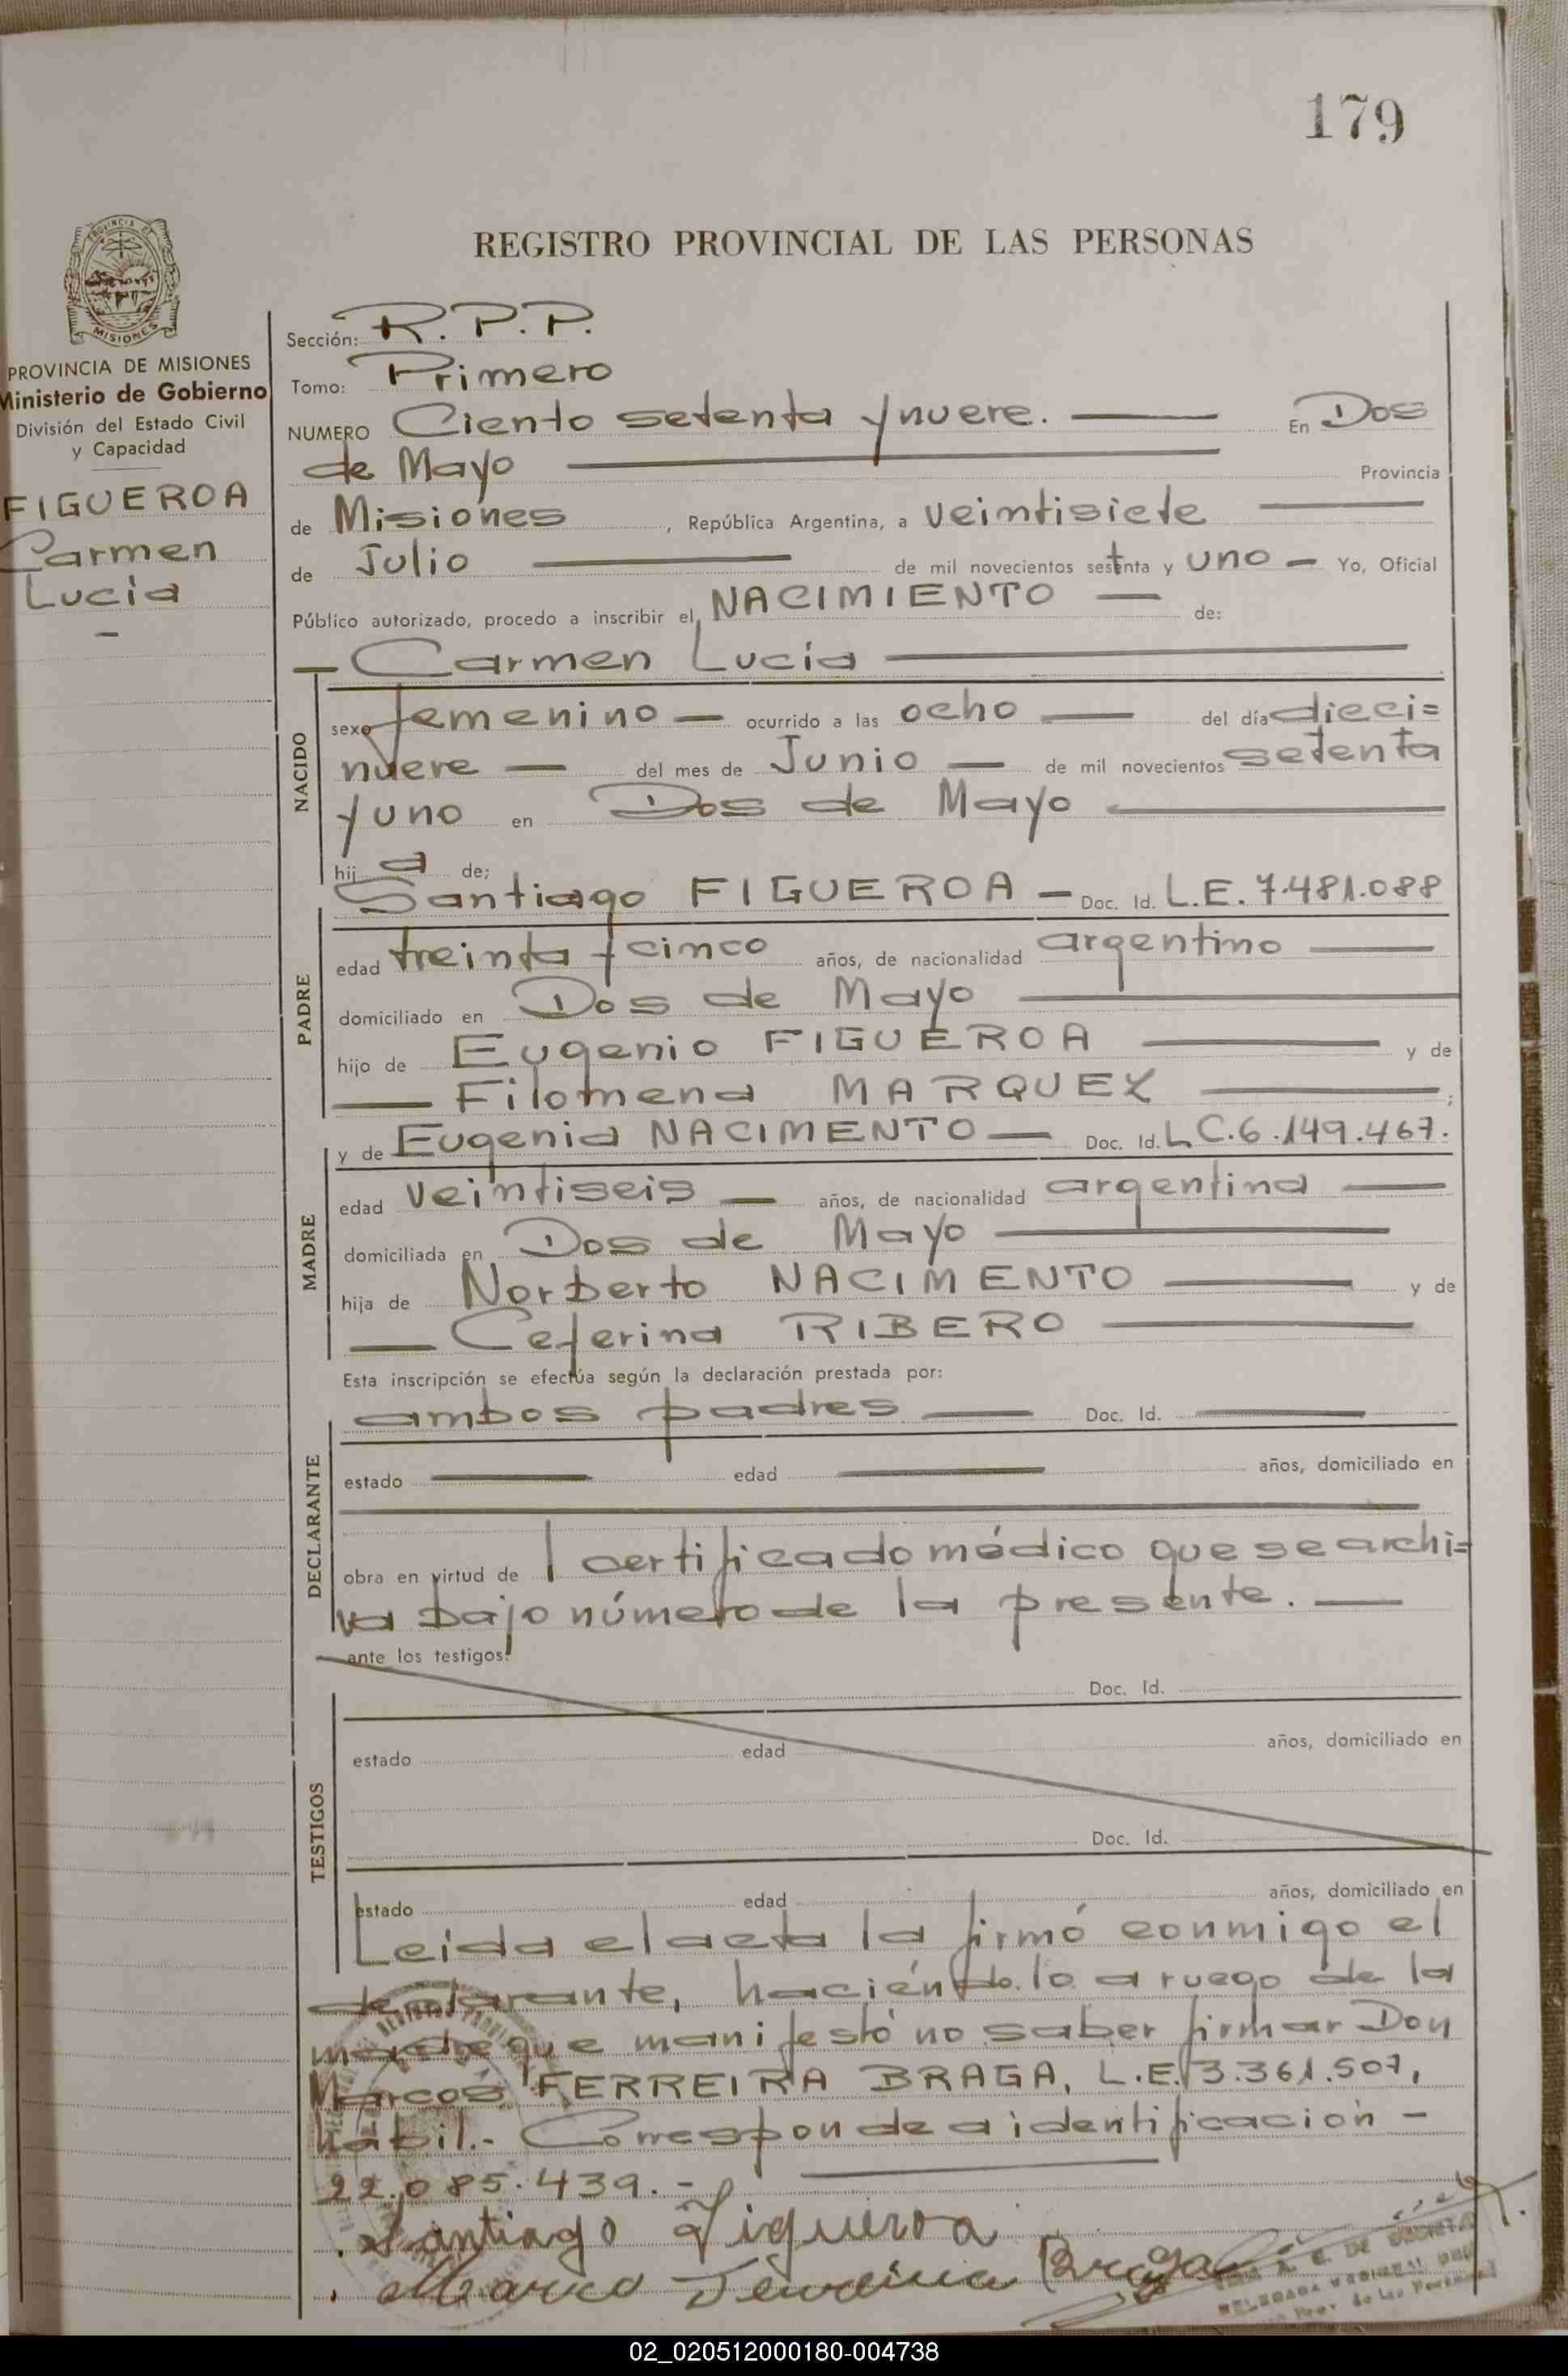 179
REGISTRO PROVINCIAL DE LAS PERSONAS
PROVINCIA DE
MISIONES
PROVINCIA DE MISIONES
Ministerio de Gobierno
División del Estado Civil
y Capacidad
FIGUEROA
Carmen
Lucia
Sección: R.P.P.
Tomo: Primero
NUMERO Ciento setenta y nueve. En Dos
de Mayo Provincia
de Misiones, República Argentina, a veintisiete
de Julio de mil novecientos setenta y uno Yo, Oficial
Público autorizado, procedo a inscribir el NACIMIENTO de:
Carmen Lucia
NACIDO
sexo femenino ocurrido a las ocho del día dieci=
nueve del mes de Junio de mil novecientos setenta
y uno en Dos de Mayo
hij a de;
Santiago FIGUEROA Doc. Id. L.E. 7.481.088
PADRE
edad treinta y cinco años, de nacionalidad argentino
domiciliado en Dos de Mayo
hijo de Eugenio FIGUEROA y de
Filomena MARQUEZ ;
y de Eugenia NACIMENTO Doc. Id. L.C. 6.149.467.
MADRE
edad veintiseis años, de nacionalidad argentina
domiciliada en Dos de Mayo
hija de Norberto NACIMENTO y de
Ceferina RIBERO
Esta inscripción se efectúa según la declaración prestada por:
ambos padres Doc. Id.
DECLARANTE
estado edad años, domiciliado en
obra en virtud de 1 certificado médico que se archi=
va bajo número de la presente.
ante los testigos:
Doc. Id.
TESTIGOS
estado edad años, domiciliado en
Doc. Id.
estado edad años, domiciliado en
Leida el acta la firmó conmigo el
declarante, haciéndolo a ruego de la
madre que manifestó no saber firmar Don
Marcos FERREIRA BRAGA, L.E. 3.361.507,
hábil.- Corresponde a identificación -
22.085.439.-
Santiago Figueroa
Marco Ferreira Braga
02_020512000180-004738